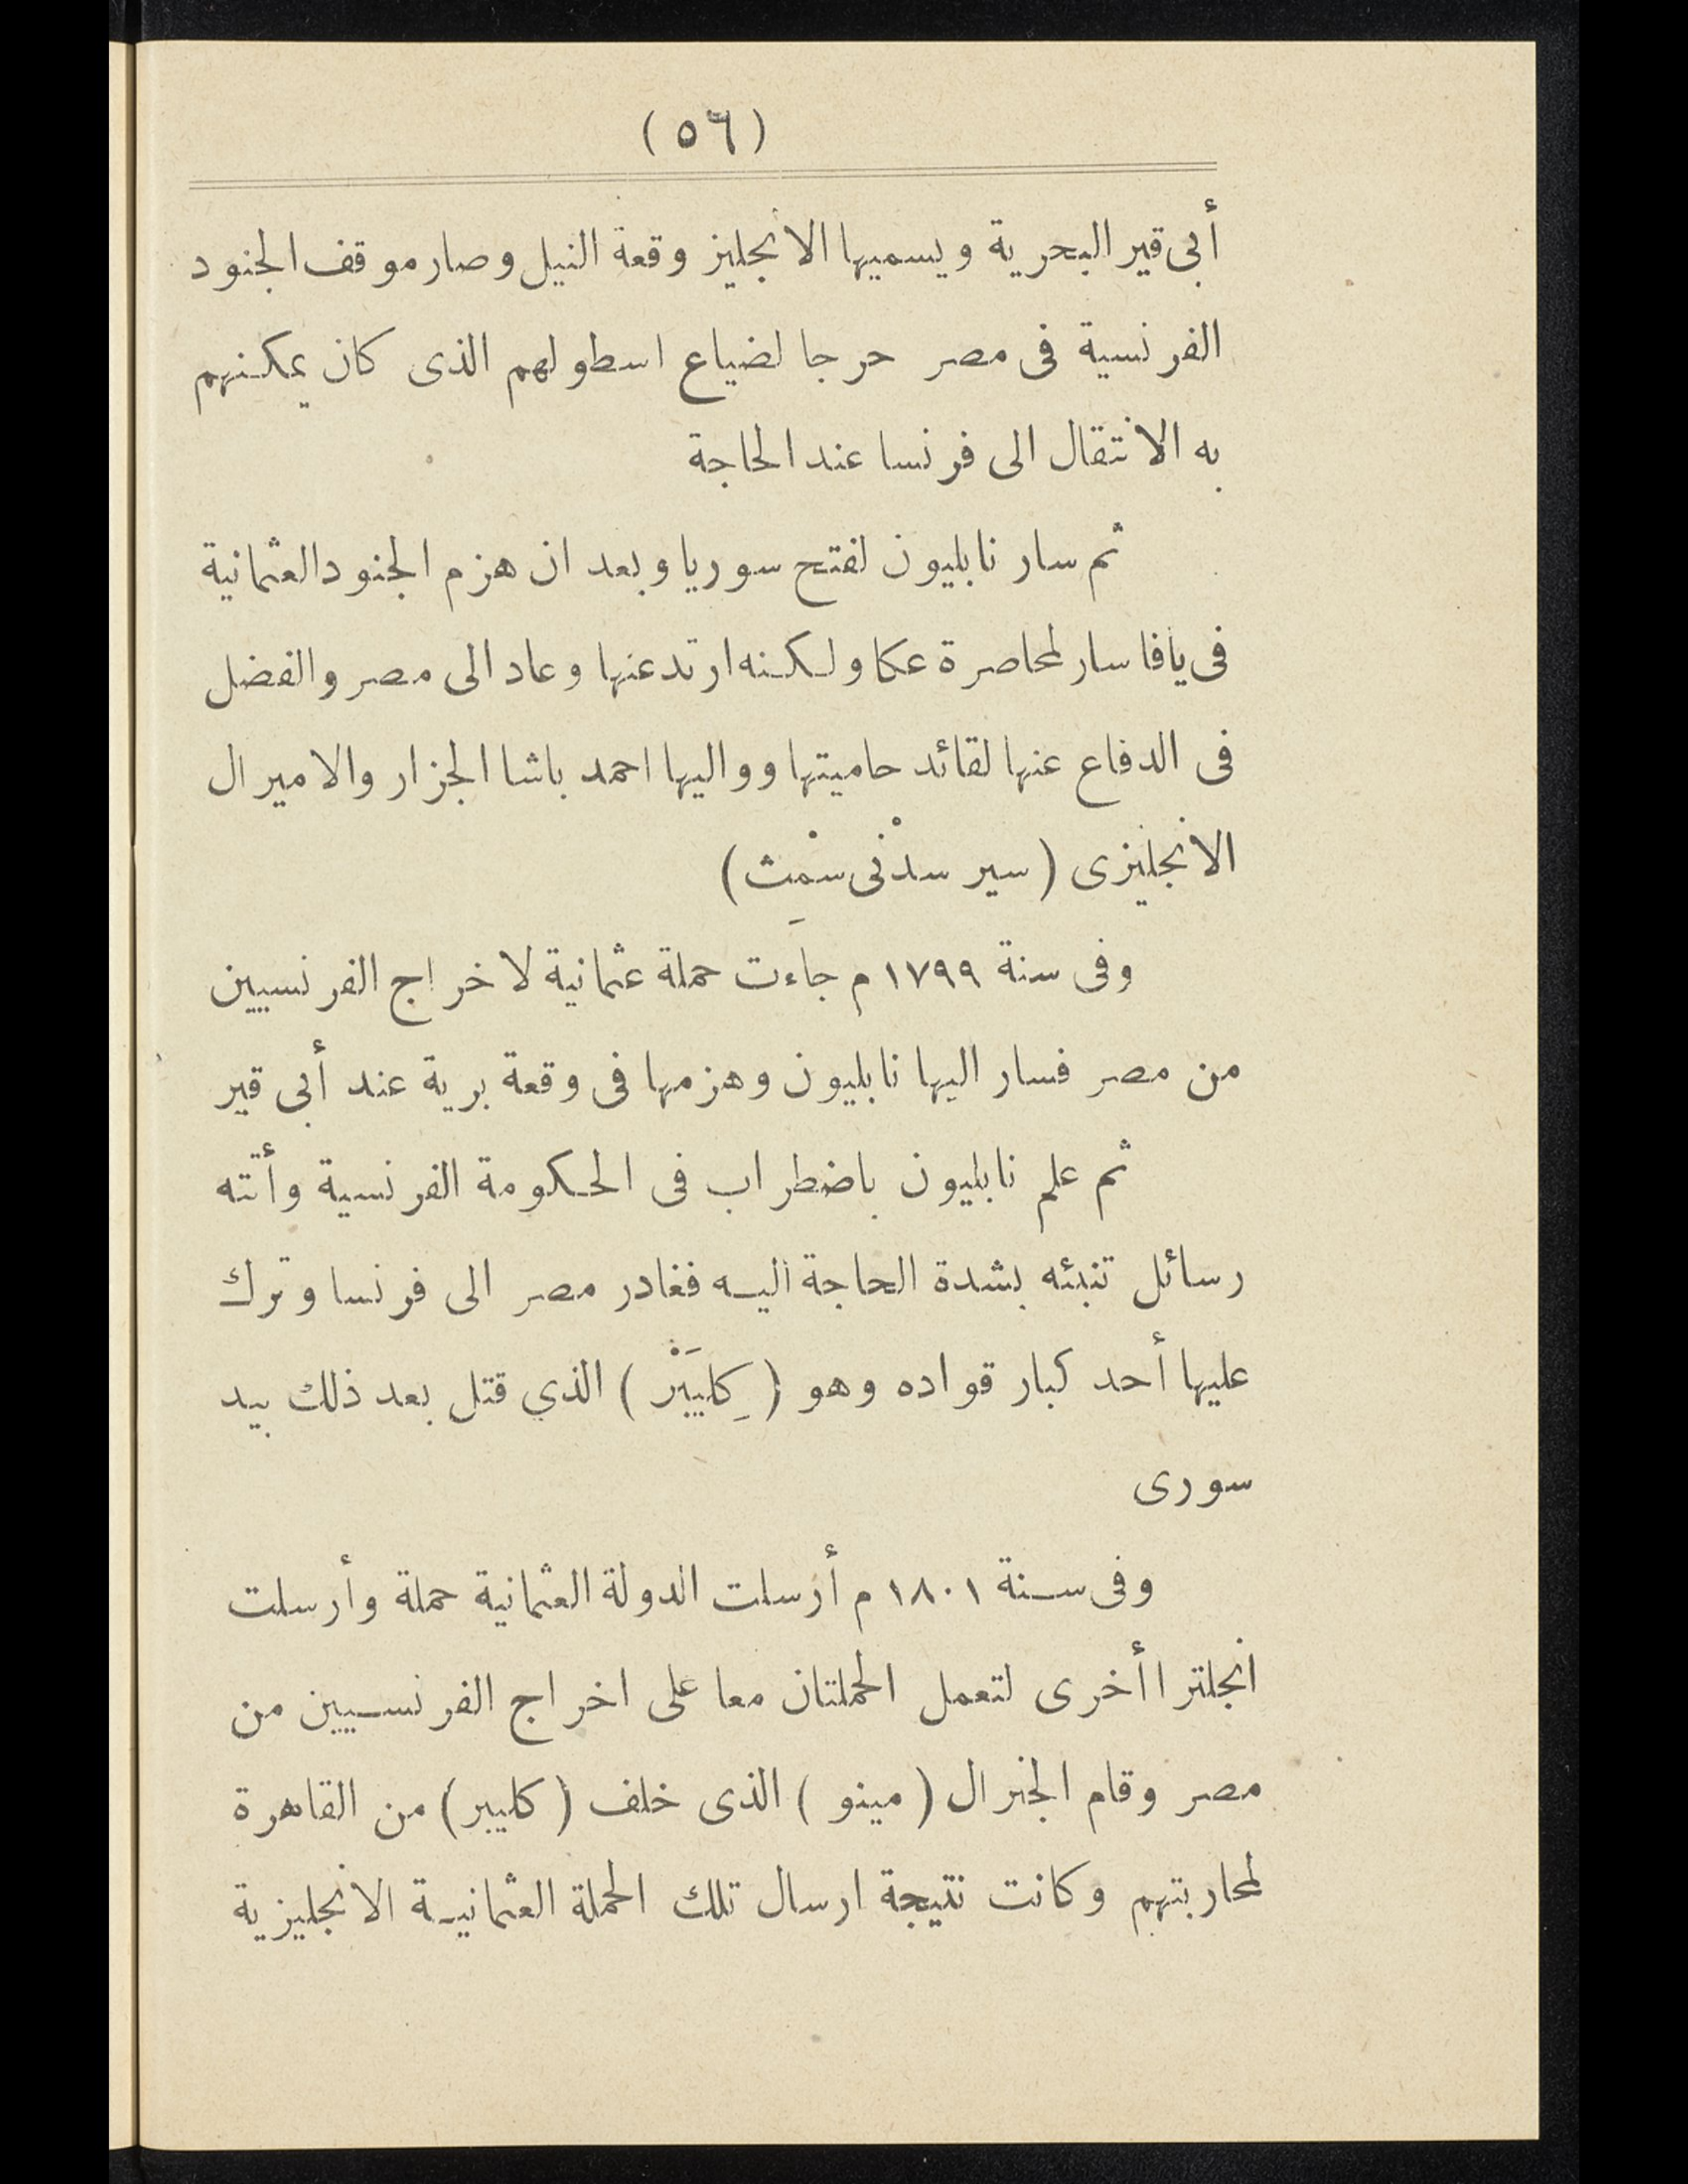 (٥٦)
أبى قير البحرية ويسميها الانجليز وقعة النيل وصار موقف الجنود
الفرنسية فى مصر حرجا لضياع اسطولهم الذى كان يمكنهم
به الانتقال الى فرنسا عند الحاجة
ثم سار نابليون لفتح سوريا وبعد ان هزم الجنود العثمانية
فى يافا سار لمحاصرة عكا ولكنه ارتد عنها وعاد الى مصر والفضل
فى الدفاع عنها لقائد حاميتها وواليها احمد باشا الجزار والاميرال
الانجليزى (سير سدْنى سمْث)
وفى سنة ١٧٩٩ م جاءَت حملة عثمانية لاخراج الفرنسيين
من مصر فسار اليها نابليون وهزمها فى وقعة برية عند أبى قير
ثم علم نابليون باضطراب فى الحكومة الفرنسية وأتته
رسائل تنبئه بشدة الحاجة اليه فغادر مصر الى فرنسا وترك
عليها أحد كبار قواده وهو (كِليَبْر) الذي قتل بعد ذلك بيد
سورى
وفى سنة ١٨٠١ م أرسلت الدولة العثمانية حملة وأرسلت
انجلترا أخرى لتعمل الحملتان معا على اخراج الفرنسيين من
مصر وقام الجنرال (مينو) الذى خلف (كليبر) من القاهرة
لمحاربتهم وكانت نتيجة ارسال تلك الحملة العثمانية الانجليزية